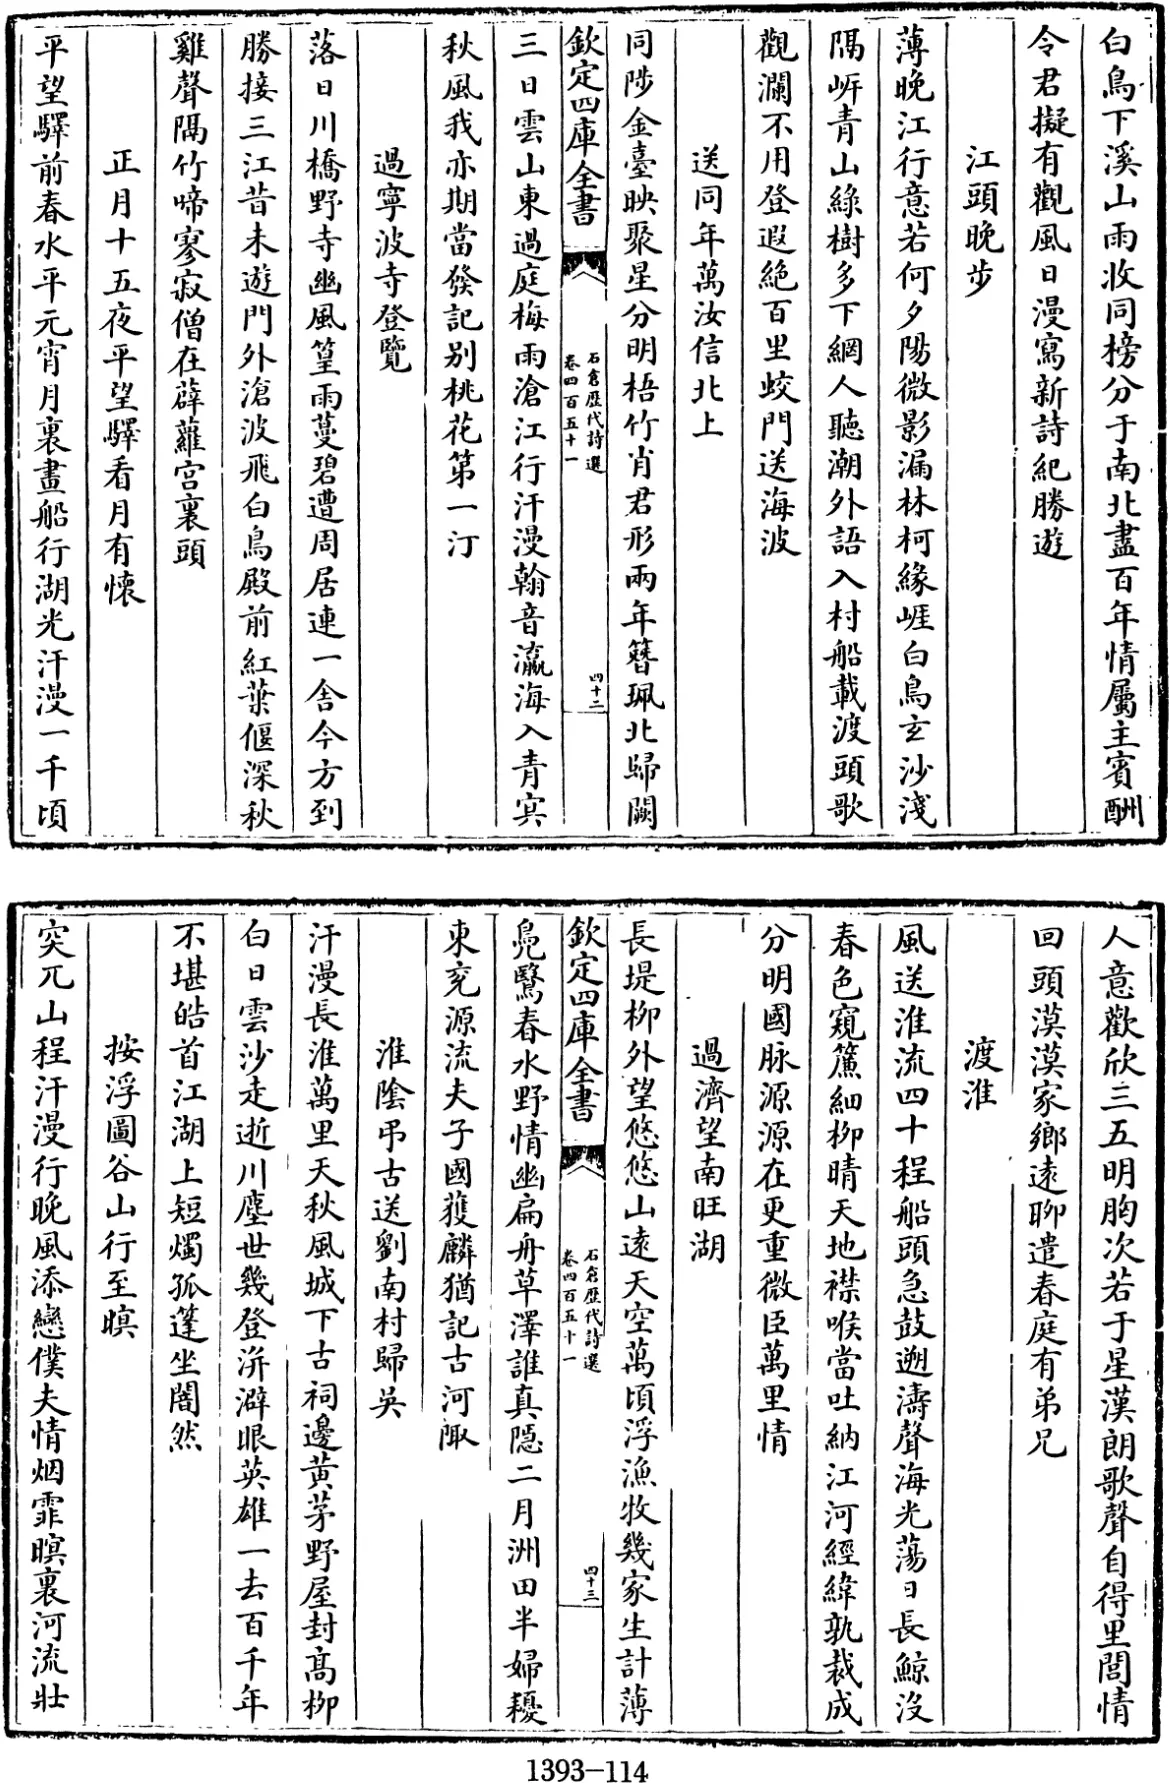 白鳥下溪山雨收同榜分于南北盡百年情屬主賓酬
令君擬有觀風日漫寫新詩紀勝遊
江頭晚步
薄晚江行意若何夕陽微影漏林柯緣崕白鳥玄沙淺
隔㟁青山綠樹多下網人聽潮外語入村船載渡頭歌
觀瀾不用登遐絶百里蛟門送海波
送同年萬汝信北上
同陟金臺映聚星分明梧竹肖君形兩年簪珮北歸闕
欽定四庫全書
石倉歷代詩選
卷四百五十一
四十二
三日雲山東過庭梅雨滄江行汗漫翰音瀛海入青㝠
秋風我亦期當發記别桃花第一汀
過寧波寺登覽
落日川橋野寺幽風篁雨蔓碧遭周居連一舍今方到
勝接三江昔未遊門外滄波飛白鳥殿前紅葉偃深秋
雞聲隔竹啼寥寂僧在薜蘿宫裏頭
正月十五夜平望驛看月有懷
平望驛前春水平元宵月裏畫船行湖光汗漫一千頃
人意歡欣三五明胸次若于星漢朗歌聲自得里閭情
回頭漠漠家鄉遠聊遣春庭有弟兄
渡淮
風送淮流四十程船頭急鼓遡濤聲海光蕩日長鯨没
春色窺簾細柳晴天地襟喉當吐納江河經緯孰裁成
分明國脉源源在更重微臣萬里情
過濟望南旺湖
長堤柳外望悠悠山遠天空萬頃浮漁牧幾家生計薄
欽定四庫全書
石倉歷代詩選
卷四百五十一
四十三
鳧鷖春水野情幽扁舟草澤誰真隠二月洲田半婦耰
東兖源流夫子國獲麟猶記古河陬
淮陰弔古送劉南村歸吳
汗漫長淮萬里天秋風城下古祠邊黄茅野屋封髙柳
白日雲沙走逝川塵世幾登洴澼眼英雄一去百千年
不堪皓首江湖上短燭孤篷坐闇然
按浮圖谷山行至暝
突兀山程汗漫行晚風添戀僕夫情烟霏暝裏河流壯
1393-114